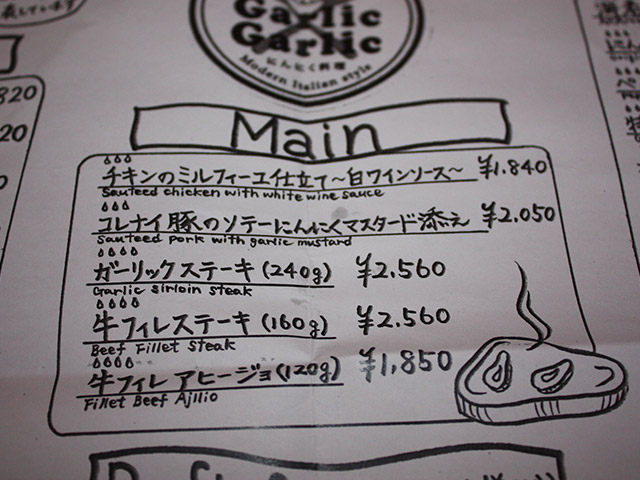 Garlic
Garlic
にんにく料理
Modern Italian style
820
20
0
Main
チキンのミルフィーユ仕立て～白ワインソース～ ¥1.840
Sauteed chicken with white wine sauce
コレナイ豚のソテーにんにくマスタード添え ¥2.050
Sauteed pork with garlic mustard
ガーリックステーキ(240g) ¥2.560
Garlic sirloin steak
牛フィレステーキ(160g) ¥2.560
Beef Fillet Steak
牛フィレアヒージョ(120g) ¥1,850
Fillet Beef Ajllio